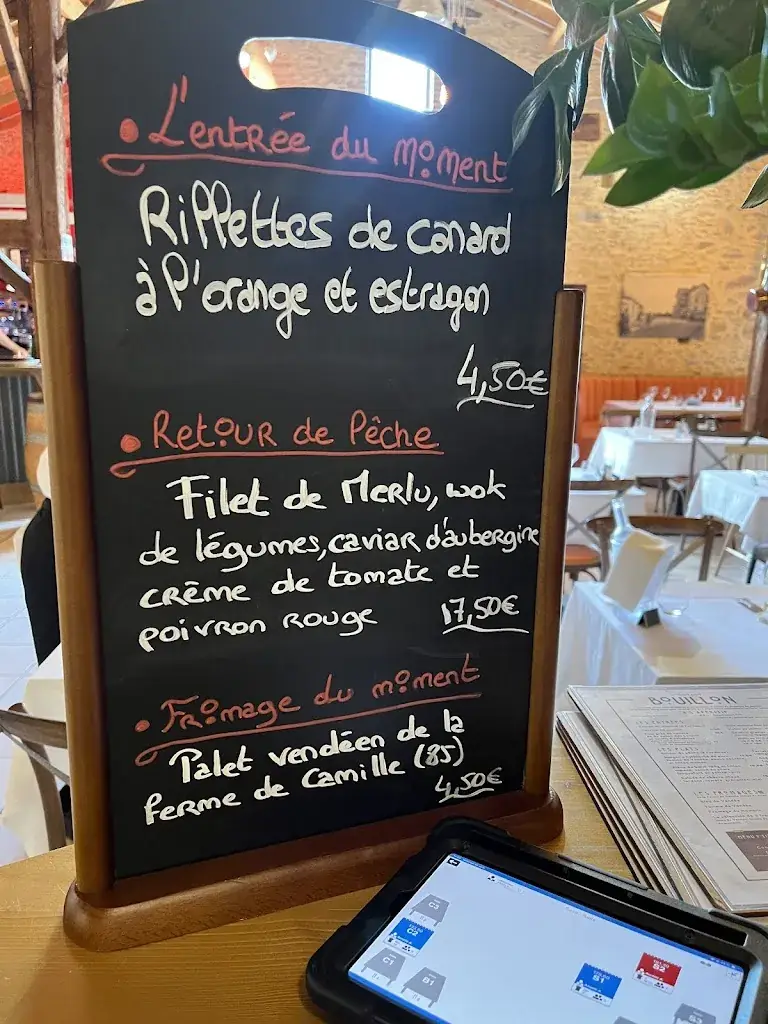 • L'entrée du moment
Rillettes de canard
à l'orange et estragon
4,50€
• Retour de Pêche
Filet de Merlu, wok
de légumes, caviar d'aubergine
crème de tomate et
poivron rouge 17,50€
• Fromage du moment
Palet vendéen de la
ferme de Camille (85)
4,50€
BOUILLON
C3
C2
C1
B1
S1
S2
S3